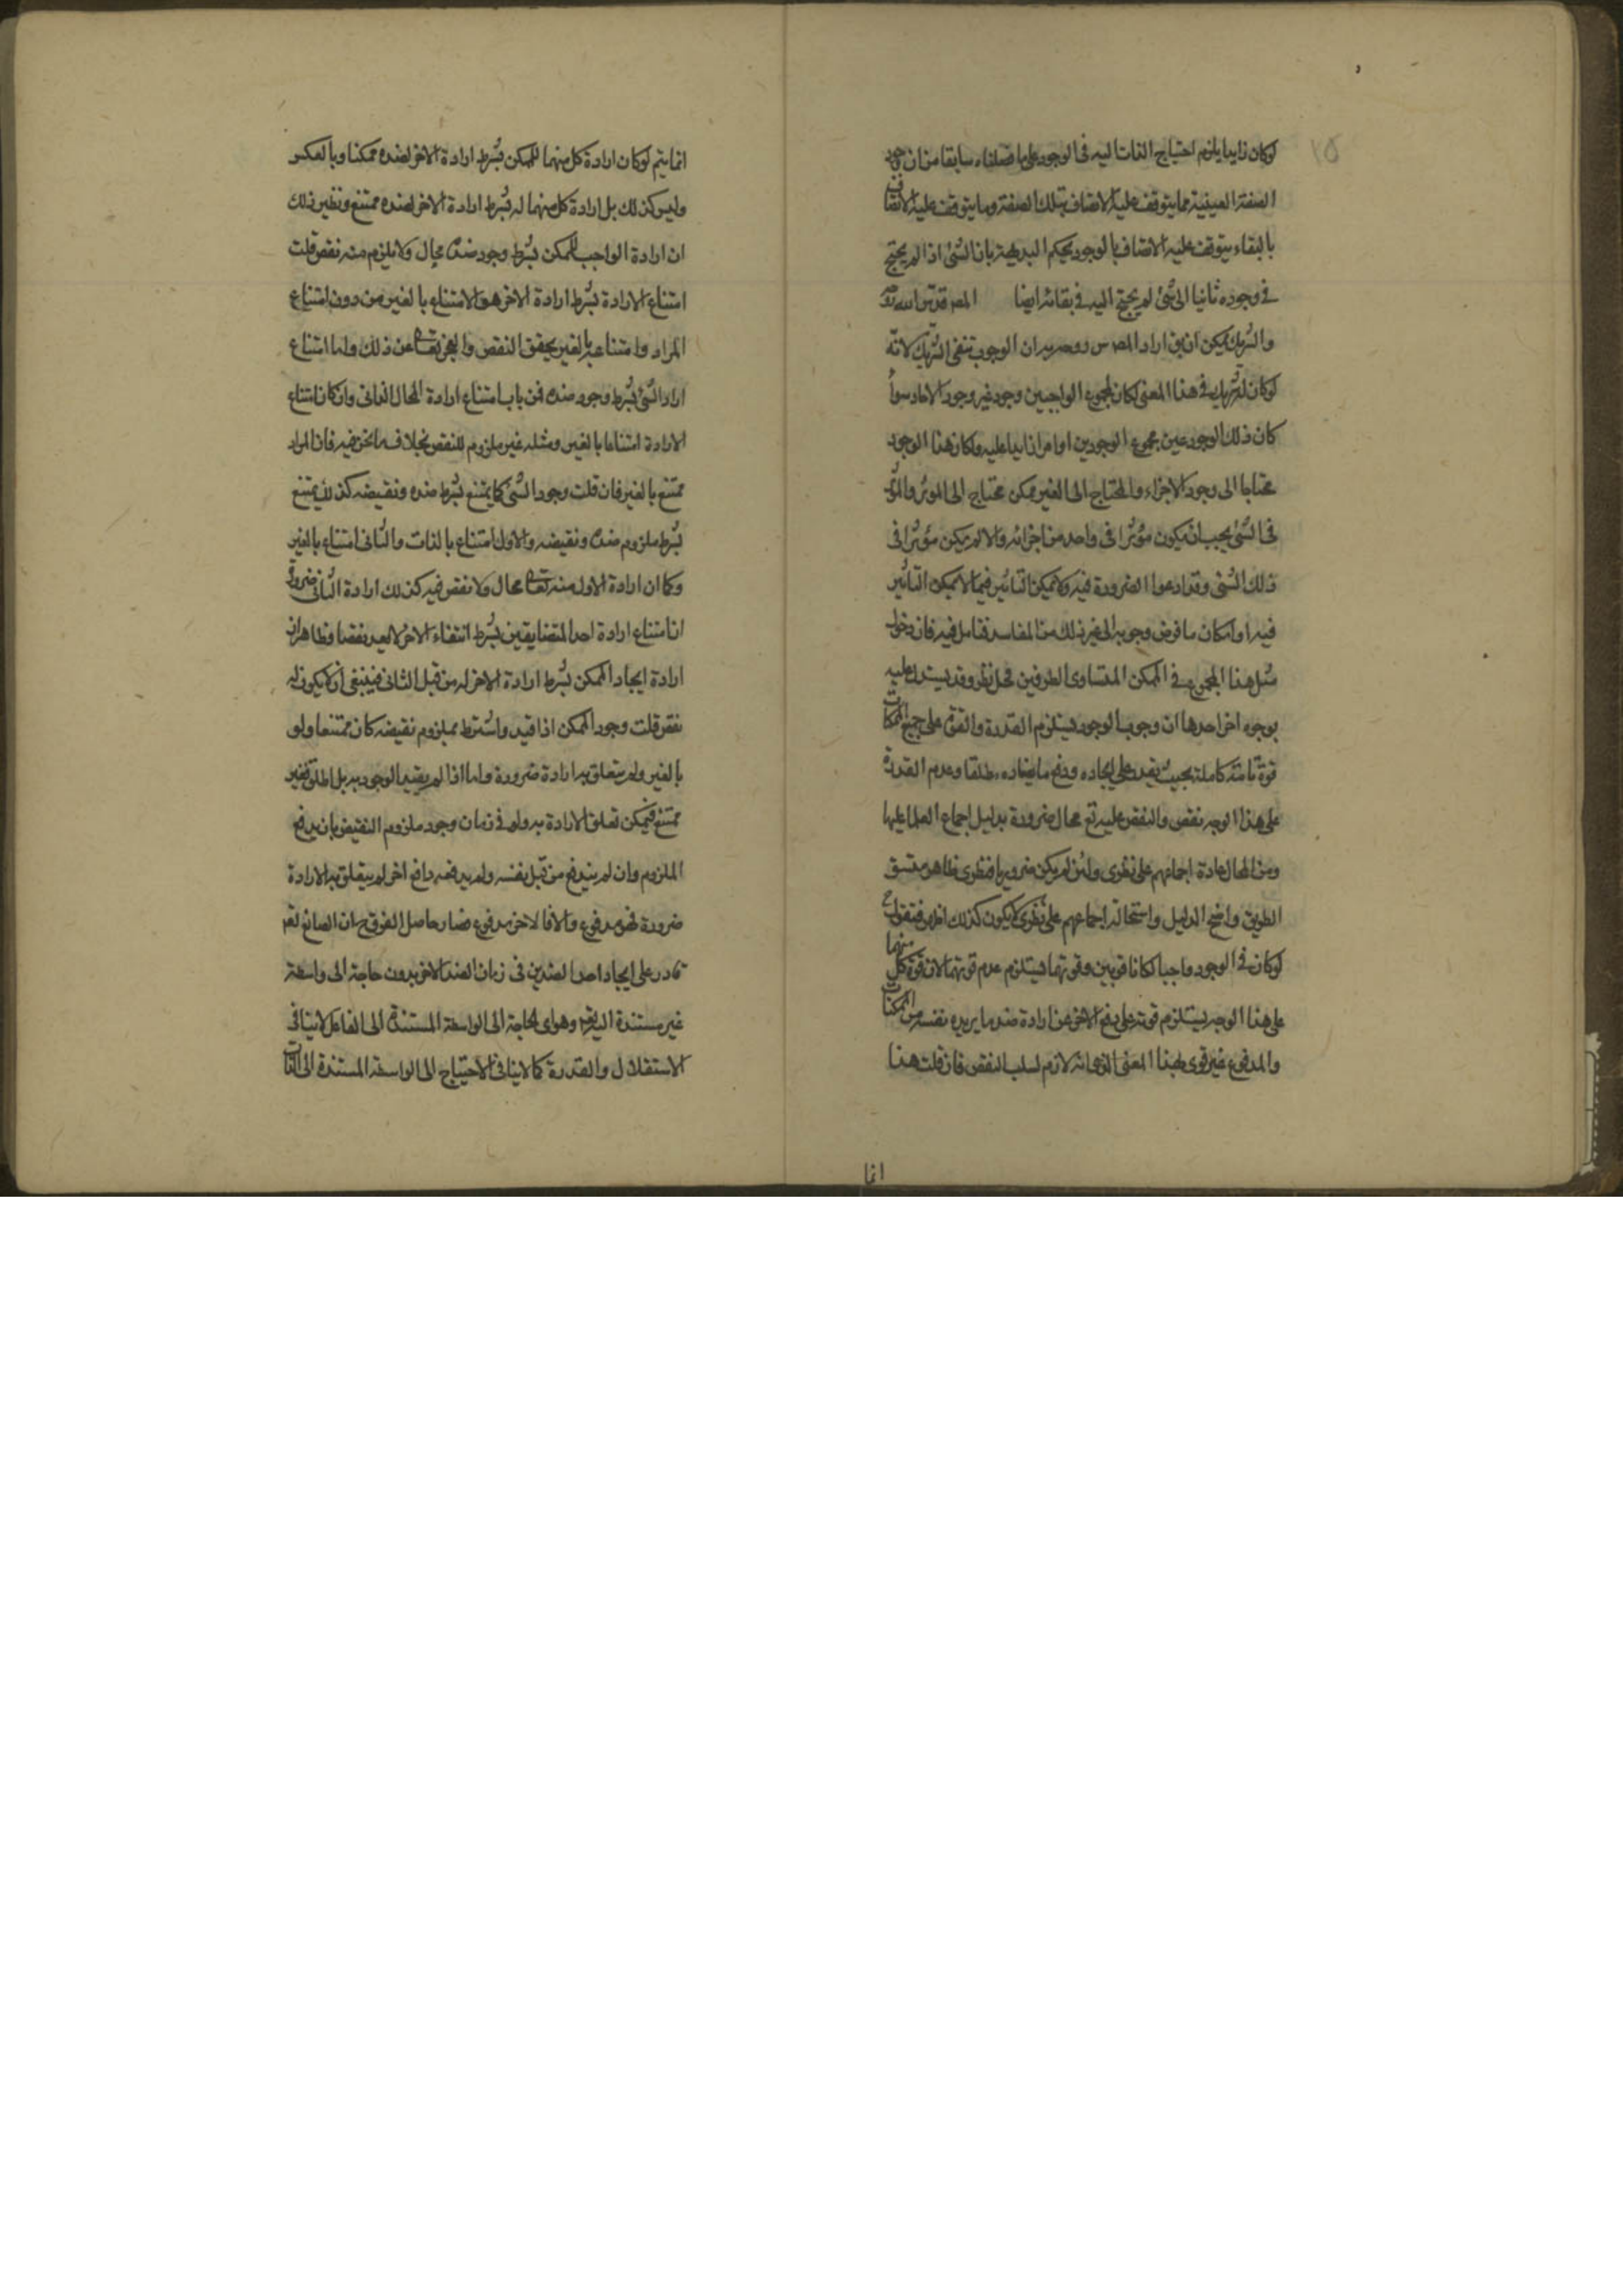 ٢٥
لوكان زايدا يلزم احتياج الذات اليه فى الوجود على ما فصلناه سابقا من ان وجود
الصفة العينية مما يتوقف عليه الاتصاف بتلك الصفة وما يتوقف عليه الاتصاف
بالبقاء يتوقف عليه الاتصاف بالوجود بحكم البديهة بان الشئ اذا لم يحتج
فى وجوده ثانيا الى شئ لم يحتج اليه فى بقائه ايضا المص قدس الله
والشريك يمكن ان يق اراد المص س روحه ان الوجوب تنفى الشريك لانه
لوكان له شريك فى هذا المعنى لكان لمجموع الواجبين وجود غير وجود الاحاد سوا
كان ذلك الوجود عين مجموع الوجودين او امرا زايدا عليه ولكان هذا الوجود
محتاجا الى وجود الاجزاء والمحتاج الى الغير ممكن محتاج الى الموثر والموثر
فى الشئ يجب ان يكون مؤثرا فى واحد من اجزائه والا لم يكن مؤثرا فى
ذلك الشئ وقد ادعوا الضرورة فيه ولا يمكن التاثير فيما لا يمكن التاثير
فيه او امكان ما فرض وجوبه الى غير ذلك من المفاسد فتامل فيه فان دخول
مثل هذا المجموع فى الممكن المتساوى الطرفين محل نظر وقد يستدل عليه
بوجوه اخر احدها ان وجوب الوجود يستلزم القدرة والقوة على جميع الممكنات
قوة تامة كاملة بحيث يقدر على ايجاده ودفع ما يضاده مطلقا وعدم القدرة
على هذا الوجه نقص والنقص عليه تع محال ضرورة بدليل اجماع العقلا عليها
ومن المحال عادة اجماعهم على نظرى ولئن لم يكن ضروريا فنظرى ظاهر متسق
الطريق واضح الدليل واستحالة اجماعهم على نظرى لا يكون كذلك اظهر فنقول ح
لوكان فى الوجود واجبا لكانا قويين وقوتهما يستلزم عدم قوتهما لان قوة كل منهما
على هذا الوجه يستلزم قوته على دفع الاخر عن ارادة ضد ما يريده نفسه من الممكنات
والمدفوع غير قوى بهذا المعنى الذى هو لازم لسلب النقص فان قلت هذا
انما
انما يتم لوكان ارادة كل منهما للممكن بشرط ارادة الاخر لضده ممكنا وبالعكس
وليس كذلك بل ارادة كل منهما له بشرط ارادة الاخر لضده ممتنع ونظير ذلك
ان ارادة الواجب للممكن بشرط وجود ضده محال ولا يلزم منه نقص قلت
امتناع الارادة بشرط ارادة الاخر هو الامتناع بالغير من دون امتناع
المراد وامتناعه بالغير يحقق النقص والعجز تعالى عن ذلك واما امتناع
ارادة الشئ بشرط وجود ضده فمن باب امتناع ارادة المحال الذاتى وان كان امتناع
الارادة امتناعا بالغير ومثله غير ملزوم للنقص بخلاف ما نحن فيه فان المراد
ممتنع بالغير فان قلت وجود الشئ كما يمتنع بشرط ضده ونقيضه كذلك يمتنع
بشرط ملزوم ضده ونقيضه والاول امتناع بالذات والثانى امتناع بالغير
وكما ان ارادة الاول منه تعالى محال ولا نقص فيه كذلك ارادة الثانى ضرورة
ان امتناع ارادة احد المتضايقين بشرط انتفاء الاخر لا يعد نقصا وظاهر ان
ارادة ايجاد الممكن بشرط ارادة الاخر له من قبل الثانى فينبغى ان لا يكون له
نقص قلت وجود الممكن اذا قيد واشترط بملزوم نقيضه كان ممتنعا ولو
بالغير ولم يتعلق به ارادة ضرورة واما اذا لم يقيد الوجود به بل اطلق فغير
ممتنع فيمكن تعلق الارادة به ولو فى زمان وجود ملزوم النقيض بان يدفع
الملزوم وان لم يندفع من قبل نفسه ولم يدفعه دافع اخر لم يتعلق به الارادة
ضرورة فهو مدفوع والا فالاخر مدفوع فصار حاصل الفرق ح ان الصانع تعر
قادر على ايجاد احد الضدين فى زمان الضد الاخر بدون حاجة الى واسطة
غير مستندة اليه تعر وهو اى الحاجة الى الواسطة المستندة الى الفاعل لا ينافى
الاستقلال والقدرة كما لا ينافى الاحتياج الى الواسطة المستندة الى الذات